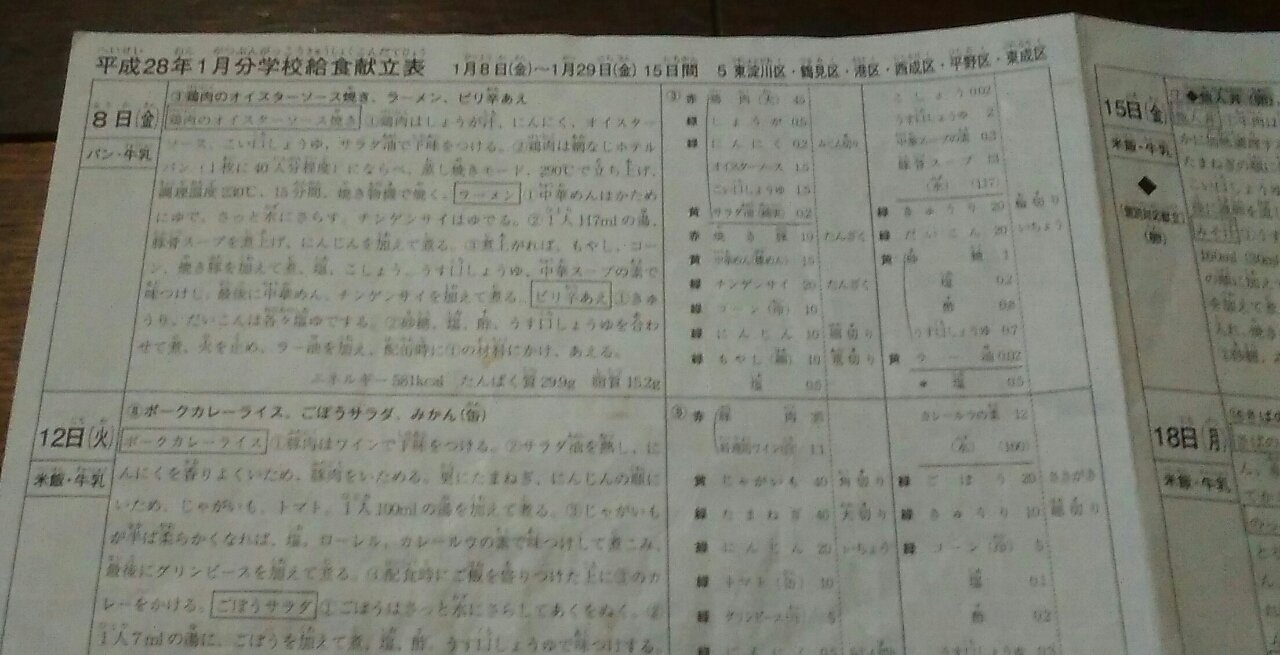 平成28年1月分学校給食献立表 1月8日(金)～1月29日(金) 15日間 5 東淀川区・鶴見区・港区・西成区・平野区・東成区
8日(金)
パン・牛乳
③鶏肉のオイスターソース焼き、ラーメン、ピリ辛あえ
鶏肉のオイスターソース焼き ①鶏肉はしょうが汁、にんにく、オイスター
ソース、こい口しょうゆ、サラダ油で下味をつける。②鶏肉は網なしホテル
パン(1枚に40人分程度)にならべ、蒸し焼きモード、290℃で立ち上げ、
調理温度230℃、15分間、焼き物機で焼く。ラーメン ①中華めんはかため
にゆで、さっと水にさらす。チンゲンサイはゆでる。②1人117mlの湯、
豚骨スープを煮上げ、にんじんを加えて煮る。③煮上がれば、もやし、コー
ン、焼き豚を加えて煮、塩、こしょう、うす口しょうゆ、中華スープの素で
味つけし、最後に中華めん、チンゲンサイを加えて煮る。ピリ辛あえ ①きゅ
うり、だいこんは各々塩ゆでする。②砂糖、塩、酢、うす口しょうゆを合わ
せて煮、火を止め、ラー油を加え、配缶時に①の材料にかけ、あえる。
エネルギー581kcal たんぱく質29.9g 脂質15.2g
③赤 鶏肉(大) 45
緑 しょうが 0.5
緑 にんにく 0.2 みじん切り
オイスターソース 1.5
こい口しょうゆ 1.5
黄 サラダ油 0.2
赤 焼き豚 10 たんざく
黄 中華めん 15
緑 チンゲンサイ 20 たんざく
緑 コーン(缶) 10
緑 にんじん 10 細切り
緑 もやし 10
塩 0.5
こしょう 0.02
うす口しょうゆ 2
中華スープの素 0.3
豚骨スープ 13
(水) (117)
緑 きゅうり 20 輪切り
緑 だいこん 20 いちょう
黄 砂糖 1
塩 0.2
酢 0.8
うす口しょうゆ 0.7
黄 ラー油 0.02
* 塩 0.5
12日(火)
米飯・牛乳
ポークカレーライス、ごぼうサラダ、みかん(缶)
ポークカレーライス ①豚肉はワインで下味をつける。②サラダ油を熱し、に
んにくを香りよくいため、豚肉をいためる。更にたまねぎ、にんじんの順に
いため、じゃがいも、トマト、1人100mlの湯を加えて煮る。③じゃがいも
が半ば柔らかくなれば、塩、ローレル、カレールウの素で味つけして煮こみ、
最後にグリンピースを加えて煮る。④配食時にご飯を盛りつけた上に③のカ
レーをかける。ごぼうサラダ ①ごぼうはさっと水にさらしてあくをぬく。②
1人7mlの湯に、ごぼうを加えて煮、塩、酢、うす口しょうゆで味つけする。
赤 豚肉
ワイン 1.1
黄 じゃがいも 40 角切り
緑 たまねぎ 40 大切り
緑 にんじん 20 いちょう
緑 トマト(缶) 10
緑 グリンピース 5
緑 にんにく
カレールウの素 12
(水) (100)
緑 ごぼう 20 ささがき
緑 きゅうり 10
緑 コーン(缶) 5
塩 0.1
酢 0.2
うす口しょうゆ
15日(金)
米飯・牛乳
◆
18日(月)
米飯・牛乳